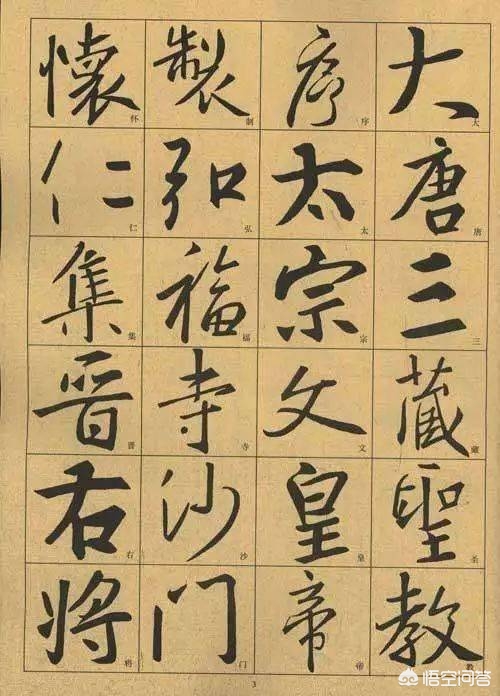 大唐三藏聖教
大唐三藏圣教
序太宗文皇帝
序太宗文皇帝
製弘福寺沙门
制弘福寺沙门
懷仁集晉右將
怀仁集晋右将
3
悟空问答